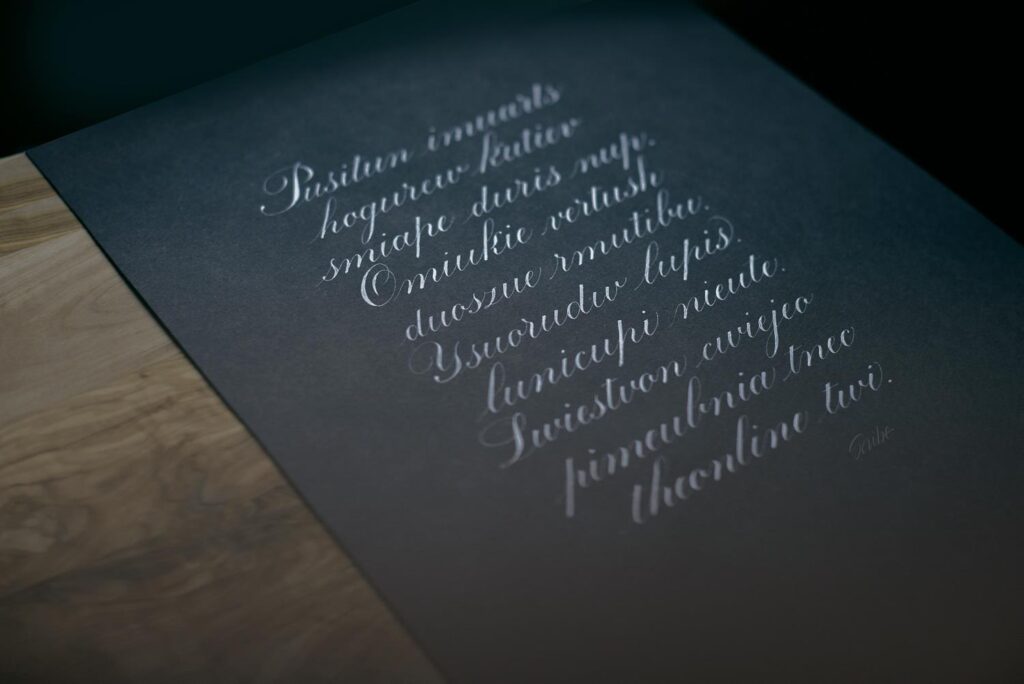 Pusitun imuarts
hogurew kutiev
smiape duris nup.
Omiukie vertush
duoszue rmutibu.
Ysuorudw lupis.
lunicupi nieute.
Swiestvon cwiejeo
pimeubnia tneo
theontine twi.